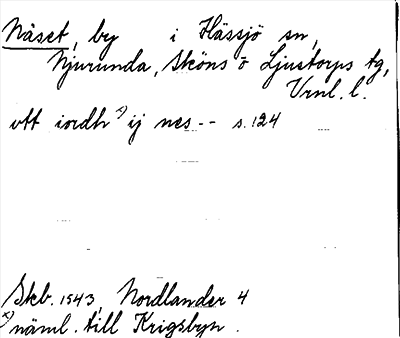 Näset, by i Hässjö sn,
Njurunda, Sköns o Ljustorps tg,
Vrnl. l.
ott iordh x) ij nes -- s. 124
Skb. 1543, Nordlander 4
x) näml. till Krigsbyn.